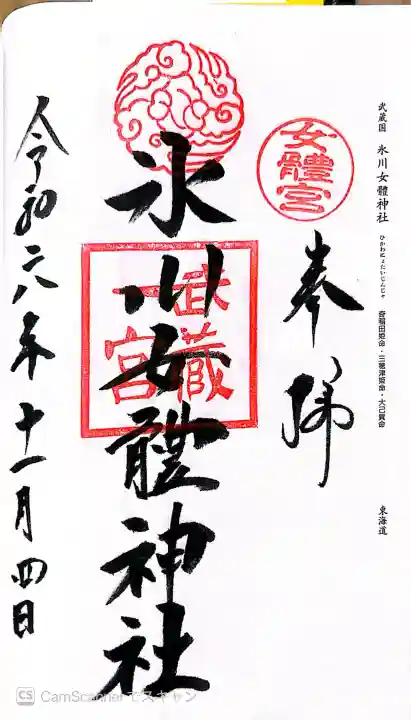 武蔵国 氷川女體神社 ひかわにょたいじんじゃ 奇稲田姫命・三穂津姫命・大己貴命 東海道
女體宮
奉拝
氷川女體神社
武蔵
一宮
令和六年十一月四日
CS CamScannerでスキャン